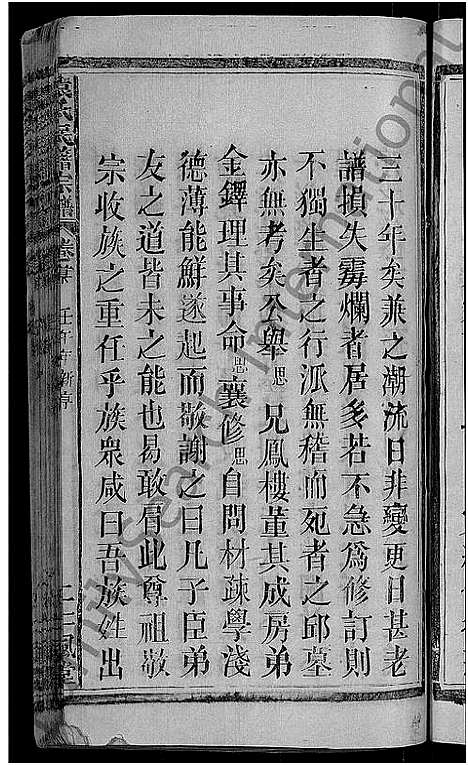 三十年矣兼之潮流日非變更日甚老
譜損失霉爛者居多若不急爲修訂則
不獨生者之行派無稽而死者之邱墓
亦無考矣公舉思兄鳳樓董其成房弟
金鐸理其事命思襄修思自問材疎學淺
德薄能鮮遂起而敬謝之曰凡子臣弟
友之道皆未之能也曷敢肩此尊祖敬
宗收族之重任乎族衆咸曰吾族姓出
氏宗譜